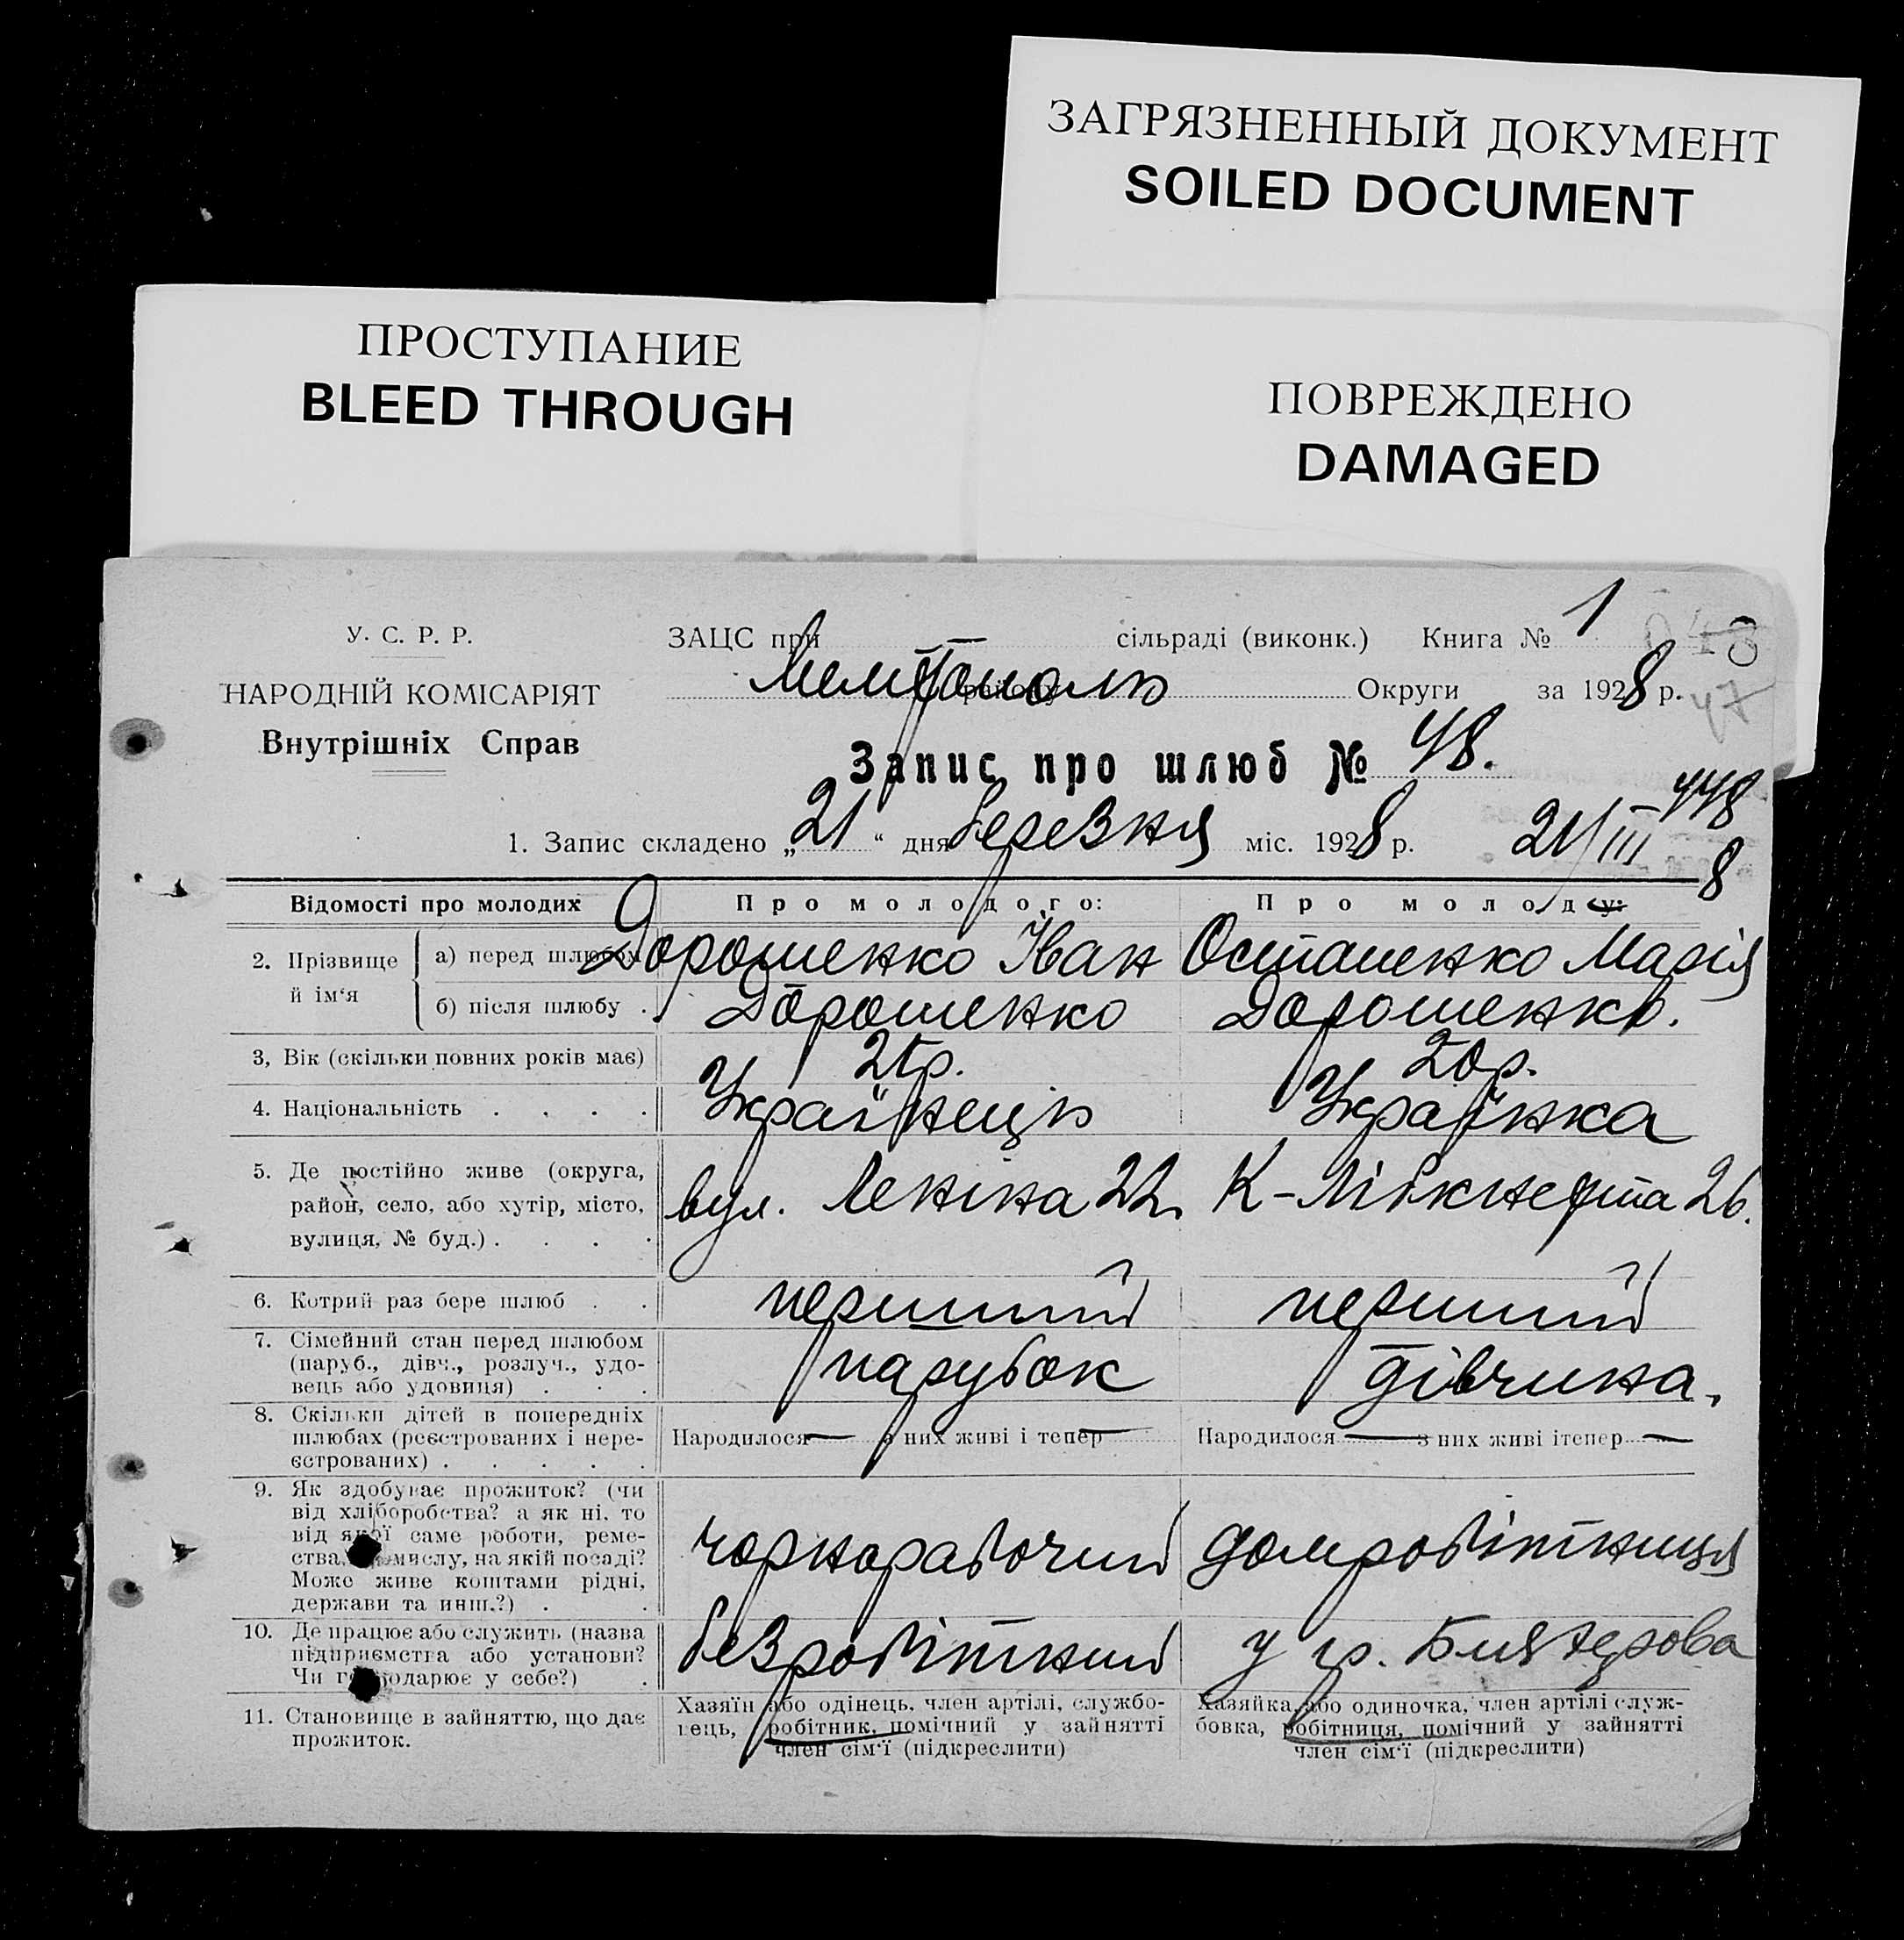 ЗАГРЯЗНЕННЫЙ ДОКУМЕНТ
SOILED DOCUMENT
ПРОСТУПАНИЕ
BLEED THROUGH
ПОВРЕЖДЕНО
DAMAGED
У. С. Р. Р.
НАРОДНІЙ КОМІСАРІЯТ
Внутрішніх Справ
ЗАЦС при сільраді (виконк.) Книга № 1
району Округи за 1928 р.
47
Запис про шлюб № 48.
448
1. Запис складено „21“ дня березня міс. 1928 р. 21/III 8
Відомості про молодих
Про молодого:
Про молоду:
2. Прізвище й ім‘я
а) перед шлюбом Дорошенко Іван Осташенко Марія
б) після шлюбу . Дорошенко Дорошенко.
3, Вік (скільки повних років має) р. 20р.
4. Національність . . . . Українець Українка
5. Де постійно живе (округа,
район, село, або хутір, місто,
вулиця, № буд.) . . . .
вул. Леніна 22 К-Лібкнехта 26.
6. Котрий раз бере шлюб . . перший перший
7. Сімейний стан перед шлюбом
(паруб., дівч., розлуч., удо-
вець або удовиця) . . .
парубок дівчина.
8. Скільки дітей в попередніх
шлюбах (реєстрованих і нере-
єстрованих) . . . . .
Народилося — з них живі і тепер —
Народилося — з них живі ітепер —
9. Як здобуває прожиток? (чи
від хліборобства? а як ні, то
від якої саме роботи, реме-
ства, промислу, на якій посаді?
Може живе коштами рідні,
держави та инш.?) . .
чорнорабочий домробітниця
10. Де працює або служить (назва
підприємства або установи?
Чи господарює у себе?) .
безробітний у гр.
11. Становище в зайняттю, що дає
прожиток.
Хазяїн або одінець, член артілі, службо-
вець, робітник, помічний у зайнятті
член сім‘ї (підкреслити)
Хазяйка, або одиночка, член артілі служ-
бовка, робітниця, помічний у зайнятті
член сім‘ї (підкреслити)